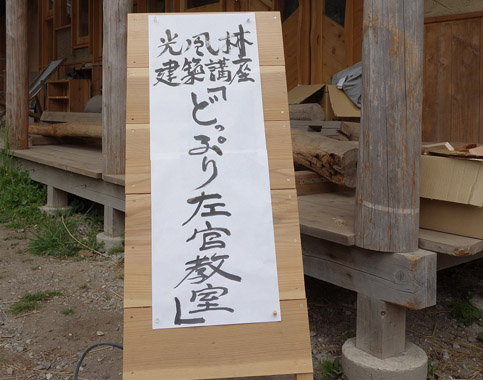 光風林
建築講座
「どっぷり左官教室」